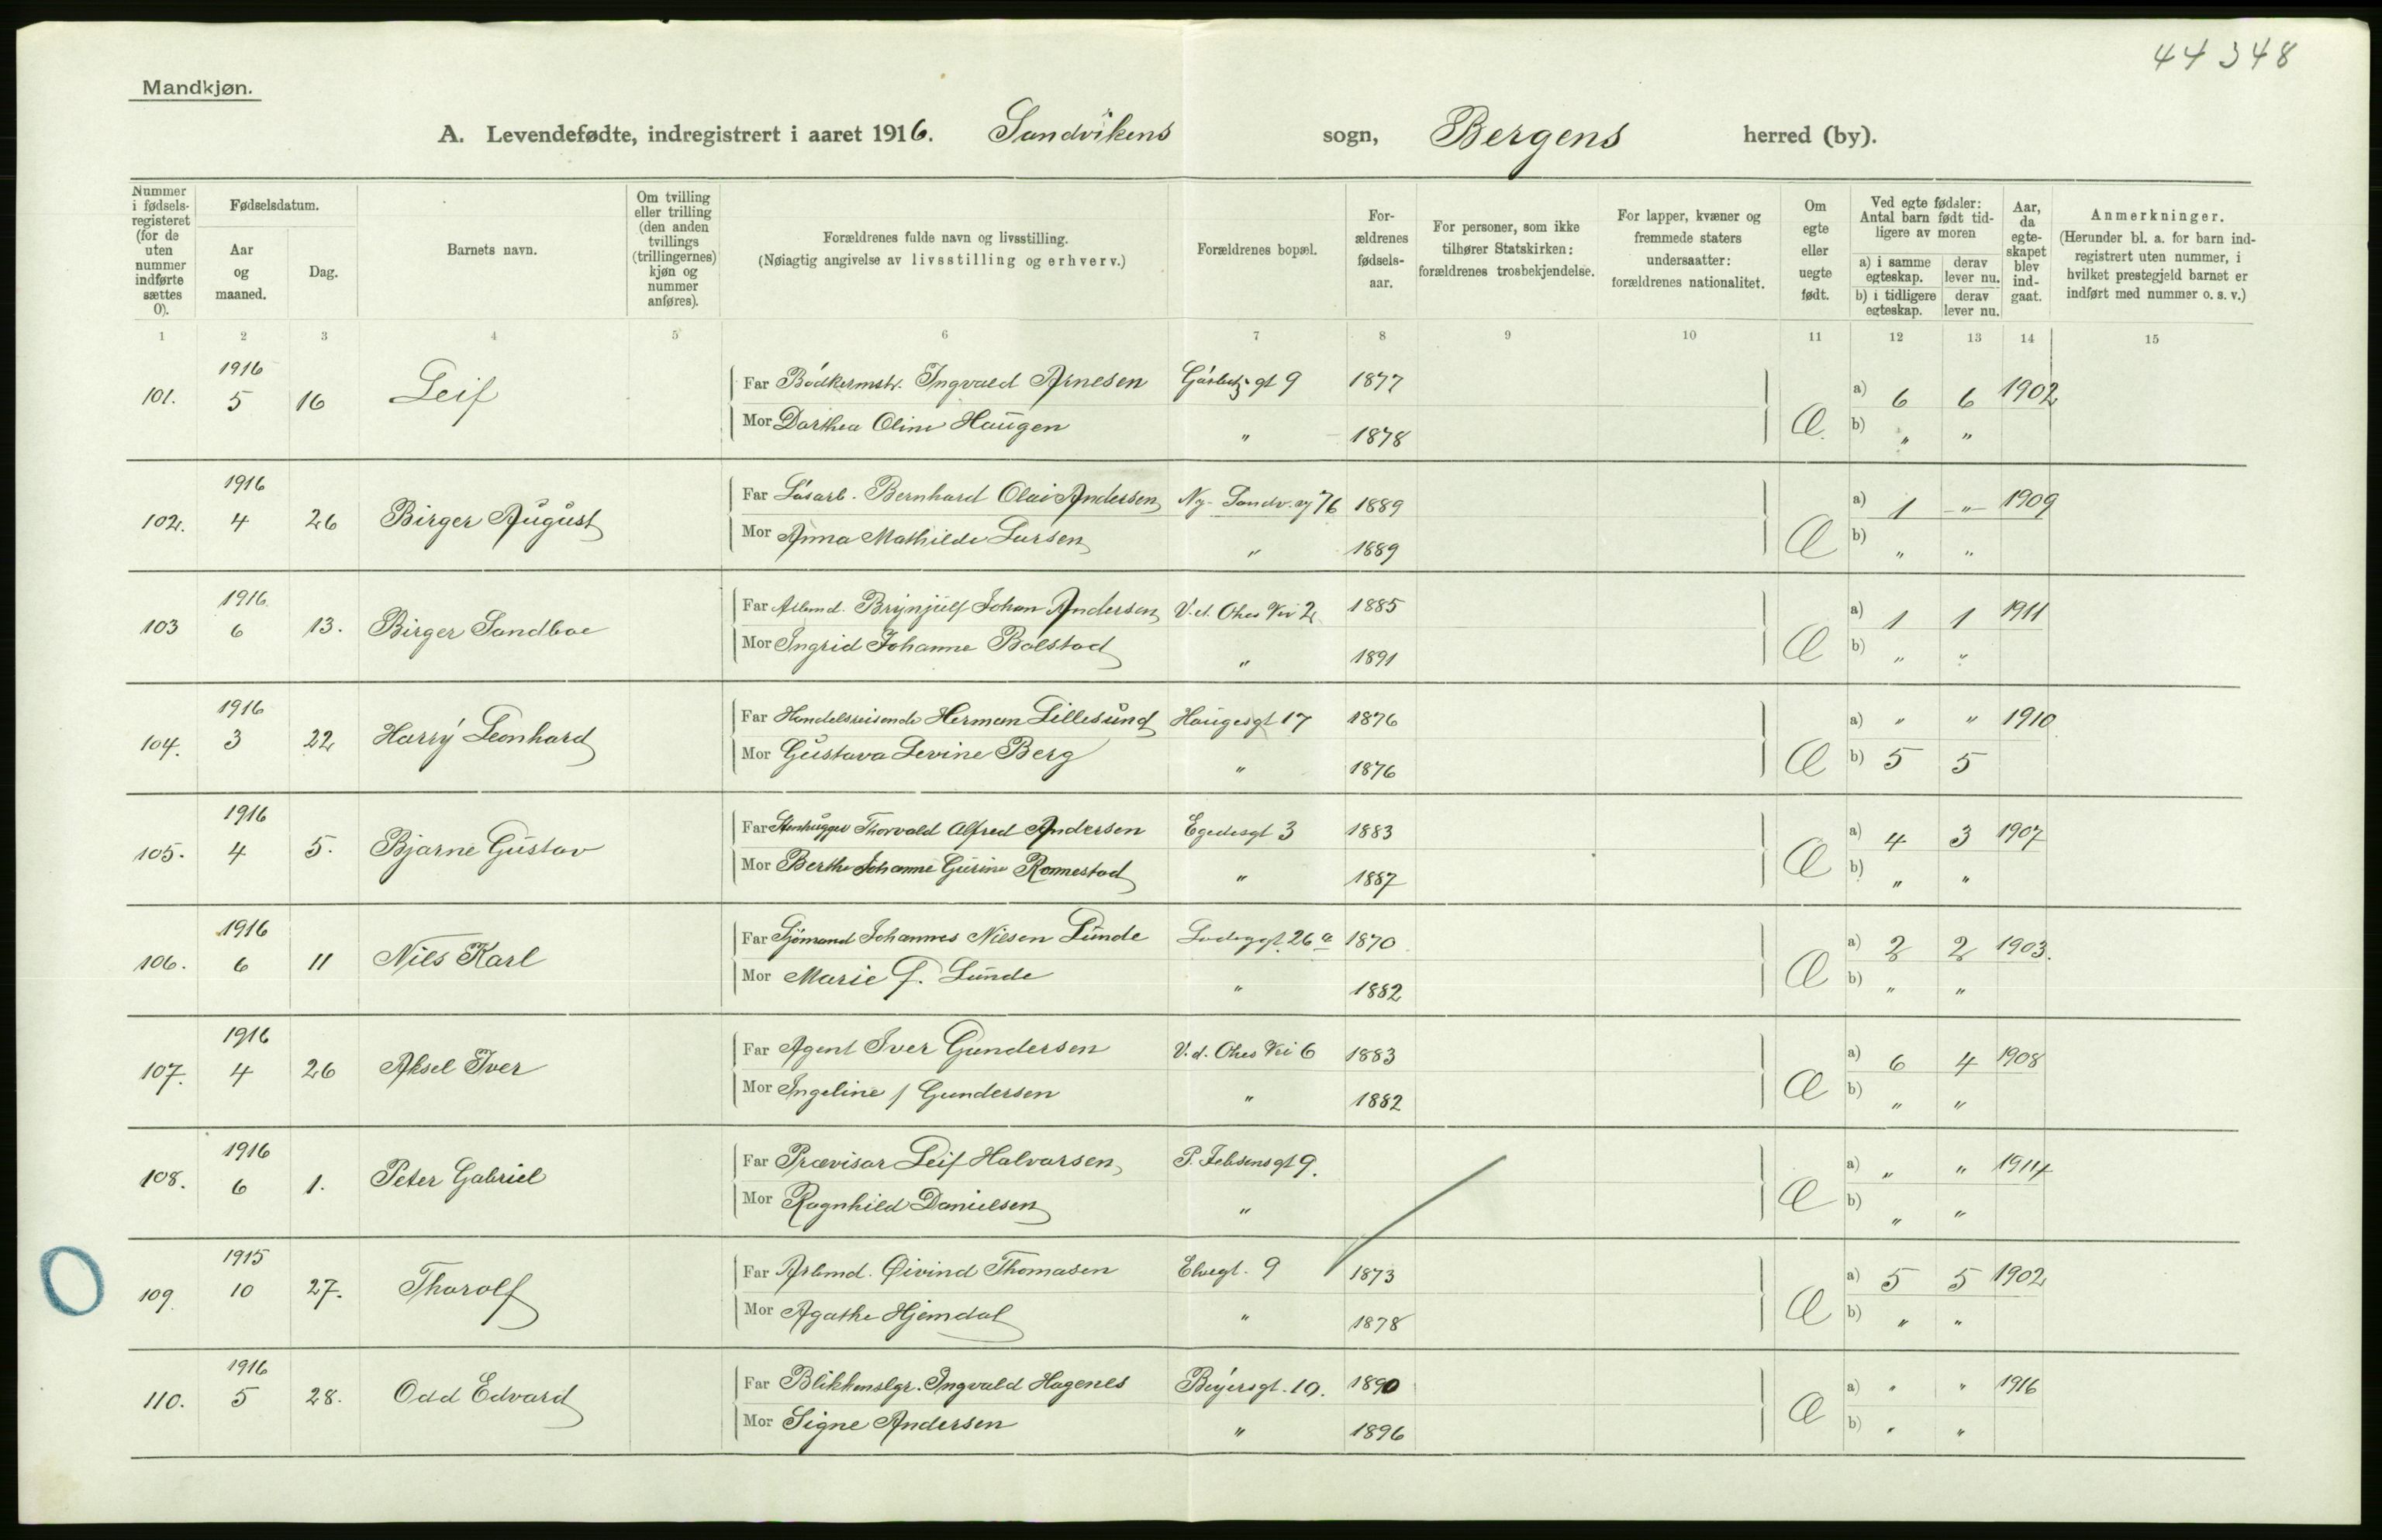 44348
Mandkjøn.
A. Levendefødte, indregistrert i aaret 1916. Sandvikens sogn, Bergens herred (by).
Nummer i fødsels-registeret (for de uten nummer indførte sættes 0).
Fødselsdatum.
Aar og maaned.
Dag.
Barnets navn.
Om tvilling eller trilling (den anden tvillings (trillingernes) kjøn og nummer anføres).
Forældrenes fulde navn og livsstilling.
(Nøiagtig angivelse av livsstilling og erhverv.)
Forældrenes bopæl.
For-ældrenes fødsels-aar.
For personer, som ikke tilhører Statskirken: forældrenes trosbekjendelse.
For lapper, kvæner og fremmede staters undersaatter: forældrenes nationalitet.
Om egte eller uegte født.
Ved egte fødsler: Antal barn født tid-ligere av moren
a) i samme egteskap. derav lever nu.
b) i tidligere egteskap. derav lever nu.
Aar, da egte-skapet blev ind-gaat.
Anmerkninger.
(Herunder bl. a. for barn ind-registrert uten nummer, i hvilket prestegjeld barnet er indført med nummer o. s. v.)
1 2 3 4 5 6 7 8 9 10 11 12 13 14 15
101. 1916 5 16 Leif Far Bödkermstr. Ingvald Arnesen gt 9 1877 Æ. a) 6 6 1902
Mor Dorthea Oline Haugen " 1878 b) " "
102. 1916 4 26 Birger August Far Løsarb. Bernhard Olai Andersen Ny-Sandv. vg 76 1889 Æ a) 1 -"- 1909
Mor Anna Mathilde Larsen " 1889 b) " "
103 1916 6 13. Birger Sandboe Far Arbmd. Brynjulf Johan Andersen V. d. Ohes Vei 2 1885 Æ a) 1 1 1911
Mor Ingrid Johanne Bolstad " 1891 b) " "
104. 1916 3 22 Harry Leonhard Far Handelsreisende Herman Lillesund Haugesgt 17 1876 Æ a) " " 1910
Mor Gustava Levine Berg " 1876 b) 5 5
105. 1916 4 5. Bjarne Gustav Far Stenhugger Thorvald Alfred Andersen Egedesgt 3 1883 Æ a) 4 3 1907
Mor Berthe Johanne Gurine Rannestad " 1887 b) " "
106. 1916 6 11 Nils Karl Far Sjömand Johannes Nilsen Lunde Ladeggt. 26 a 1870 Æ a) 2 2 1903.
Mor Marie f. Lunde " 1882 b) " "
107. 1916 4 26 Aksel Iver Far Agent Iver Gundersen V. d. Ohes Vei 6 1883 Æ a) 6 4 1908
Mor Ingeline f Gundersen " 1882 b) " "
108. 1916 6 1. Peter Gabriel Far Provisor Leif Halvorsen P. Jebsensgt 9. Æ a) " " 1914
Mor Ragnhild Danielsen " b) " "
109. 1915 10 27. Thorolf Far Arbmd. Øivind Thomasen Elvegt. 9 1873 Æ a) 5 5 1902
Mor Agathe Hjemdal " 1878 b) " "
110. 1916 5 28. Odd Edvard Far Blikkenslgr. Ingvald Hagenes Beyersgt. 10. 1890 Æ a) " " 1916
Mor Signe Andersen " 1896 b) " "